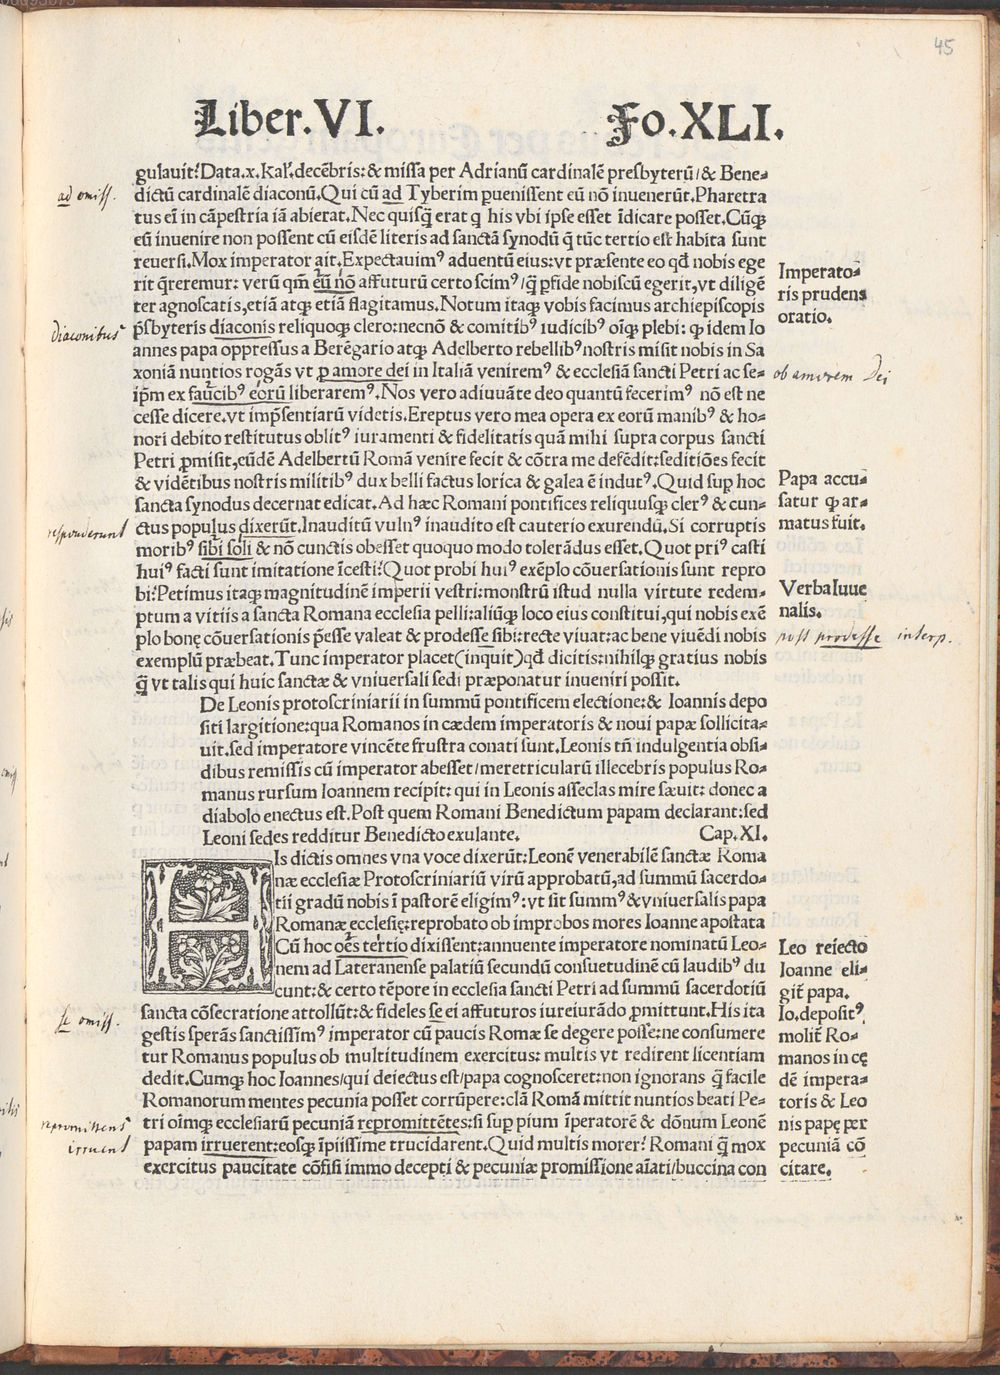 45
Liber.VI. Fo.XLI.
gulauit? Data.x.Kaľ.decẽbris:& missa per Adrianũ cardinalẽ presbyterũ/& Bene⸗
dictũ cardinalẽ diaconũ.Qui cũ ad Tyberim ꝑuenissent eũ nõ inuenerũt.Pharetra
ad omiss.
tus eĩ in cãpestria iã abierat.Nec quisꝗ̃ erat q̃ his vbi ipse esset ĩdicare posset.Cũqꝫ
eũ inuenire non possent cũ eisdẽ literis ad sanctã synodũ q̃ tũc tertio est habita sunt
reuersi.Mox imperator ait.Expectauimꝰ aduentũ eius:vt præsente eo qđ nobis ege
rit q̃reremur: verũ qm̃ eũ nõ affuturũ certo scimꝰ/q̃ ꝑfide nobiscũ egerit,vt diligẽ
ter agnoscatis,etiã atqꝫ etiã flagitamus.Notum itaqꝫ vobis facimus archiepiscopis
Imperato⸗
ris prudens
oratio.
p̃sbyteris diaconis reliquoqꝫ clero:necnõ & comitibꝰ iudicibꝰ oĩqꝫ plebi: ꝙ idem Io
Diaconibus
annes papa oppressus a Berẽgario atqꝫ Adelberto rebellibꝰ nostris misit nobis in Sa
xoniã nuntios rogãs vt ꝑ amore dei in Italiã veniremꝰ & ecclesiã sancti Petri ac se⸗
ob amorem Dei
ip̃m ex faucibꝰ eorũ liberaremꝰ.Nos vero adiuuãte deo quantũ fecerimꝰ nõ est ne
cesse dicere.vt imp̃sentiarũ videtis.Ereptus vero mea opera ex eorũ manibꝰ & ho⸗
nori debito restitutus oblitꝰ iuramenti & fidelitatis quã mihi supra corpus sancti
Petri ꝓmisit,eũdẽ Adelbertũ Romã venire fecit & cõtra me defẽdit:seditiões fecit
& vidẽtibus nostris militibꝰ dux belli factus lorica & galea ẽ indutꝰ.Quid suꝑ hoc
sancta synodus decernat edicat.Ad hæc Romani pontifices reliquusqꝫ clerꝰ & cun⸗
Papa accu⸗
satur ꝙ ar⸗
matus fuit.
ctus populus dixerũt.Inauditũ vulnꝰ inaudito est cauterio exurendũ.Si corruptis
responderunt
moribꝰ sibi soli & nõ cunctis obesset quoquo modo tolerãdus esset.Quot priꝰ casti
huiꝰ facti sunt imitatione ĩcesti?Quot probi huiꝰ exẽplo cõuersationis sunt repro
bi?Petimus itaqꝫ magnitudinẽ imperii vestri:monstrũ istud nulla virtute redem⸗
ptum a vitiis a sancta Romana ecclesia pelli:aliũqꝫ loco eius constitui,qui nobis exẽ
Verba Iuue
nalis.
plo bonę cõuersationis p̃esse valeat & prodesse sibi:recte viuat:ac bene viuẽdi nobis
post prodesse interp.
exemplũ præbeat.Tunc imperator placet(inquit)qđ dicitis:nihilqꝫ gratius nobis
q̃ vt talis qui huic sanctæ & vniuersali sedi præponatur inueniri possit.
De Leonis protoscriniarii in summũ pontificem electione:& Ioannis depo
siti largitione:qua Romanos in cædem imperatoris & noui papæ sollicita⸗
uit.sed imperatore vincẽte frustra conati sunt.Leonis tñ indulgentia obsi⸗
dibus remissis cũ imperator abesset/meretricularũ illecebris populus Ro⸗
manus rursum Ioannem recipit: qui in Leonis asseclas mire sæuit: donec a
diabolo enectus est.Post quem Romani Benedictum papam declarant:sed
Leoni sedes redditur Benedicto exulante. Cap.XI.
HIs dictis omnes vna voce dixerũt:Leonẽ venerabilẽ sanctæ Roma
næ ecclesiæ Protoscriniariũ virũ approbatũ,ad summũ sacerdo⸗
tii gradũ nobis ĩ pastorẽ eligimꝰ:vt sit summꝰ & vniuersalis papa
Romanæ ecclesię:reprobato ob improbos mores Ioanne apostata
Cũ hoc oẽs tertio dixissent:annuente imperatore nominatũ Leo⸗
nem ad Lateranense palatiũ secundũ consuetudinẽ cũ laudibꝰ du
cunt:& certo tẽpore in ecclesia sancti Petri ad summũ sacerdotiũ
sancta cõsecratione attollũt:& fideles se ei affuturos iureiurãdo ꝓmittunt.His ita
se omiss.
gestis sperãs sanctissimꝰ imperator cũ paucis Romæ se degere posse:ne consumere
tur Romanus populus ob multitudinem exercitus: multis vt redirent licentiam
dedit.Cumqꝫ hoc Ioannes/qui deiectus est/papa cognosceret:non ignorans q̃ facile
Romanorum mentes pecunia posset corrũpere:clã Romã mittit nuntios beati Pe⸗
tri oĩmqꝫ ecclesiarũ pecuniã repromittẽtes:si suꝑ pium ĩperatorẽ & dõnum Leonẽ
repromittens
papam irruerent:eosqꝫ ĩpiissime trucidarent.Quid multis morer? Romani q̃ mox
irruant
exercitus paucitate cõfisi immo decepti & pecuniæ promissione aĩati/buccina con
Leo reiecto
Ioanne eli⸗
git̃ papa.
Io.depositꝰ
molit̃ Ro⸗
manos in cę
dẽ impera⸗
toris & Leo
nis papę per
pecuniã cõ
citare.